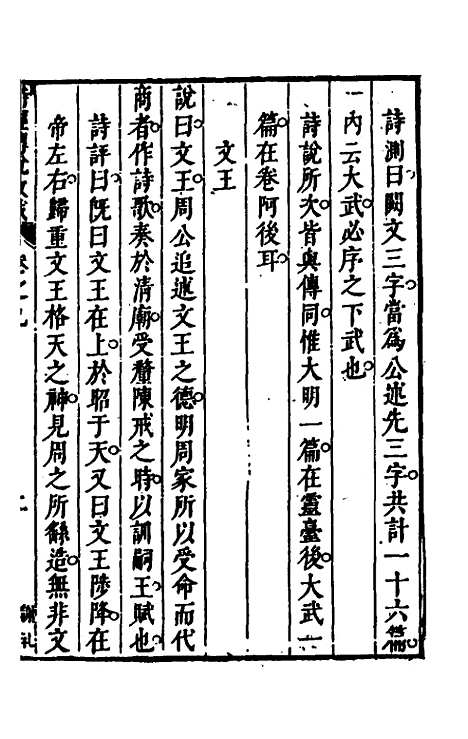 詩測曰闕文三字當爲公述先三字共計一十六篇
一內云大武必序之下武也
詩說所次皆與傳同惟大明一篇在靈臺後大武一
篇在卷阿後耳
文王
說曰文王周公追述文王之德明周家所以受命而代
商者作詩歌奏於清廟受釐陳戒之時以訓嗣王賦也
詩評曰旣曰文王在上於昭于天又曰文王陟降在
帝左右歸重文王格天之神見周之所繇造無非文
卷之九